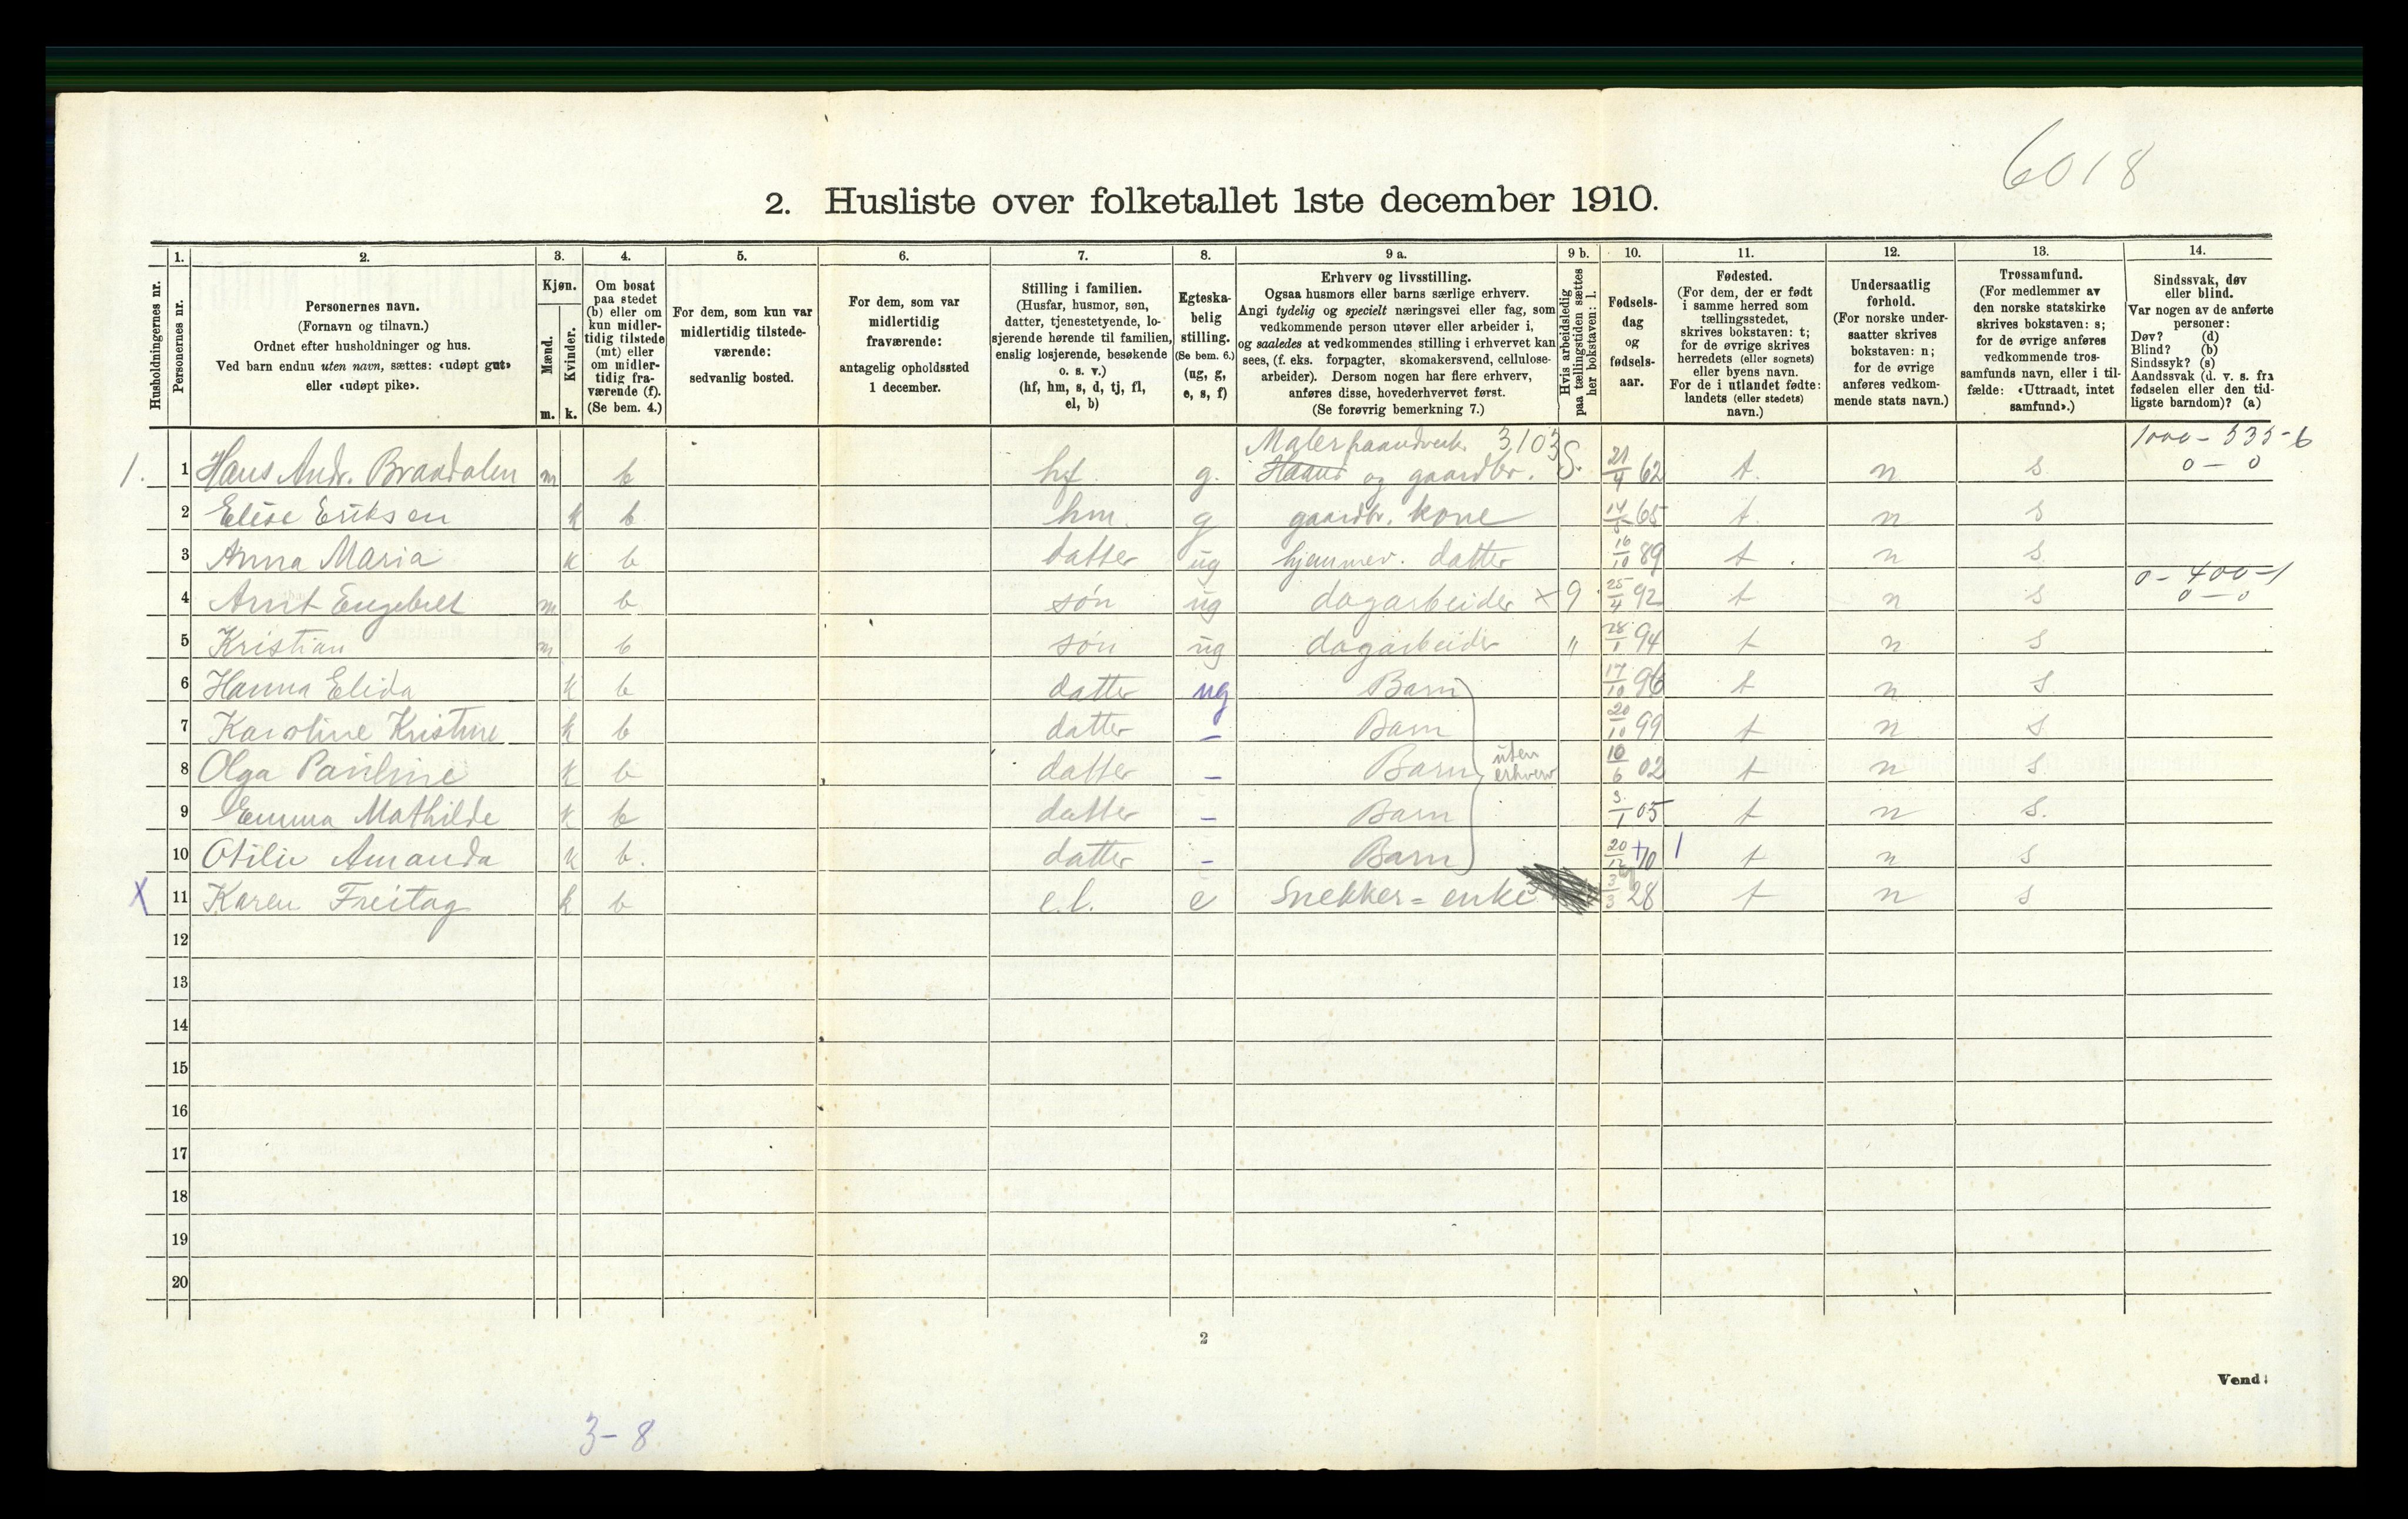 6018
2. Husliste over folketallet 1ste december 1910.
Husholdningernes nr.
1. Personernes nr.
2. Personernes navn.
(Fornavn og tilnavn.)
Ordnet efter husholdninger og hus.
Ved barn endnu uten navn, sættes: «udøpt gut»
eller «udøpt pike».
3. Kjøn.
Mænd. m.
Kvinder. k.
4. Om bosat
paa stedet
(b) eller om
kun midler-
tidig tilstede
(mt) eller
om midler-
tidig fra-
værende (f).
(Se bem. 4.)
5. For dem, som kun var
midlertidig tilstede-
værende:
sedvanlig bosted.
6. For dem, som var
midlertidig
fraværende:
antagelig opholdssted
1 december.
7. Stilling i familien.
(Husfar, husmor, søn,
datter, tjenestetyende, lo-
sjerende hørende til familien,
enslig losjerende, besøkende
o. s. v.)
(hf, hm, s, d, tj, fl,
el, b)
8. Egteska-
belig
stilling.
(Se bem. 6.)
(ug, g,
e, s, f)
9 a. Erhverv og livsstilling.
Ogsaa husmors eller barns særlige erhverv.
Angi tydelig og specielt næringsvei eller fag, som
vedkommende person utøver eller arbeider i,
og saaledes at vedkommendes stilling i erhvervet kan
sees, (f. eks. forpagter, skomakersvend, cellulose-
arbeider). Dersom nogen har flere erhverv,
anføres disse, hovederhvervet først.
(Se forøvrig bemerkning 7.)
9 b. Hvis arbeidsledig
paa tællingstiden sættes
her bokstaven: l.
10. Fødsels-
dag
og
fødsels-
aar.
11. Fødested.
(For dem, der er født
i samme herred som
tællingsstedet,
skrives bokstaven: t;
for de øvrige skrives
herredets (eller sognets)
eller byens navn.
For de i utlandet fødte:
landets (eller stedets)
navn.)
12. Undersaatlig
forhold.
(For norske under-
saatter skrives
bokstaven: n;
for de øvrige
anføres vedkom-
mende stats navn.)
13. Trossamfund.
(For medlemmer av
den norske statskirke
skrives bokstaven: s;
for de øvrige anføres
vedkommende tros-
samfunds navn, eller i til-
fælde: «Uttraadt, intet
samfund».)
14. Sindssvak, døv
eller blind.
Var nogen av de anførte
personer:
Døv? (d)
Blind? (b)
Sindssyk? (s)
Aandssvak (d. v. s. fra
fødselen eller den tid-
ligste barndom)? (a)
Maler 3103 1000 - 535 - 6
1. 1 Hans Andr. Brandalen m b hf. g. og gaardbr. S. 21/4 62 t. n s. 0 — 0
2 Elise Eriksen k b hm. g gaardbr. kone 14/5 65 t. n s
3 Anna Maria k b datter ug hjemmev. datter 16/10 89 t n s.
0 - 400 - 1
4 Arnt Engebret m b søn ug dagarbeider × 9 25/4 92 t n s 0 — 0
5 Kristian m b søn ug dagarbeider " 28/1 94 t n s
6 Hanna Elida k b datter ug Barn 17/10 96 t n s
7 Karoline Kristine k b datter – Barn 20/10 99 t n s
8 Olga Pauline k b datter – Barn uten erhverv 10/6 02 t n s
9 Emma Mathilde k b datter – Barn 3/1 05 t n s.
10 Otilie Amanda k b. datter – Barn 20/12 + 10 1 t n s
X 11 Karen Freitag k b e.l. e Snekker = enke 3/3 28 t n s
12
13
14
15
16
17
18
19
20
2
Vend!
3 - 8